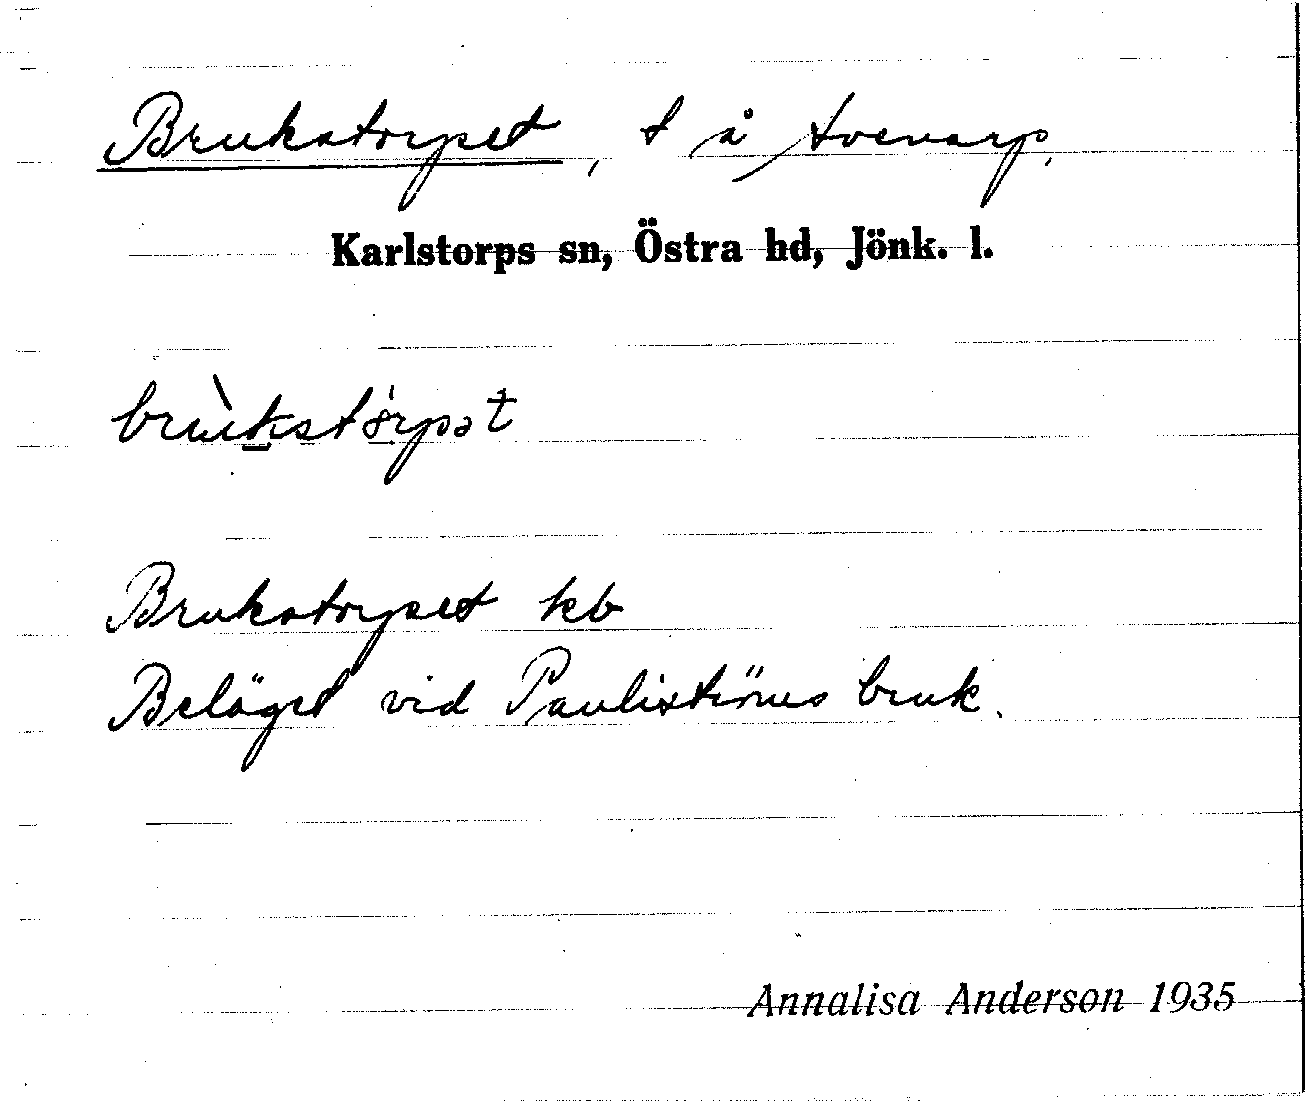 Brukstorpet, t å Svenarp,
Karlstorps sn, Östra hd, Jönk. l.
Brukstorpet kb
Beläget vid Pauliströms bruk.
Annalisa Anderson 1935